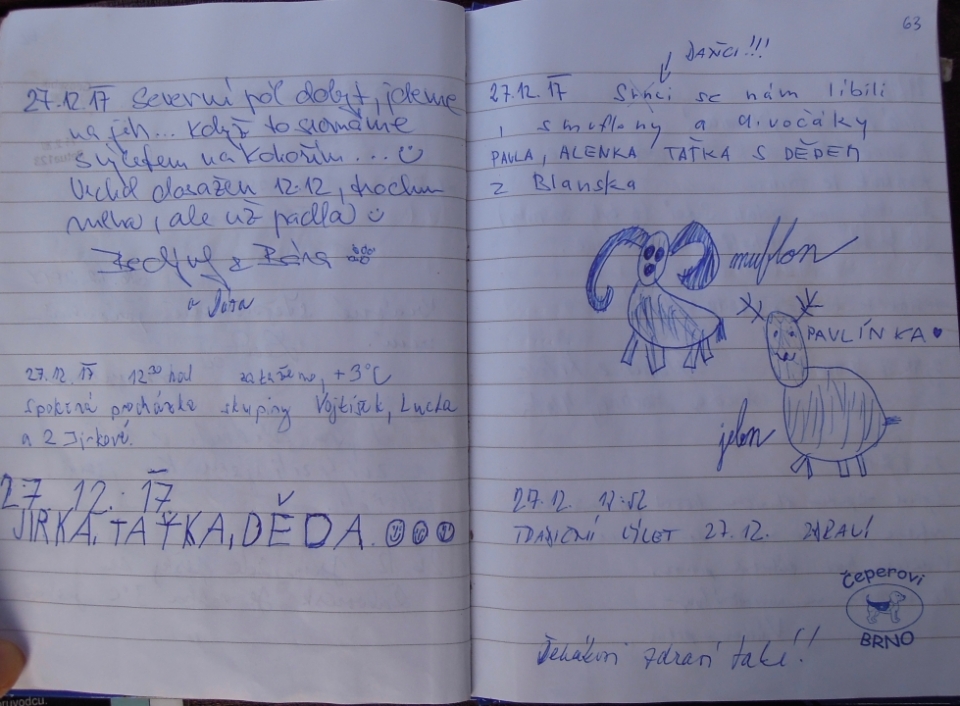 27.12.17 Severní pól dobyt, jdeme
na jih... když to srovnáme
s výletem na Kokořín...
Vrchol dosažen 12.12, trochu
mlha, ale už padla
Bára
a
27.12.17 12⁰⁰ hod zataženo, +3°C
Spokojná procházka skupiny Vojtíšek, Lucka
a 2 Jirkové.
27 12. 17
JIRKA, TAŤKA, DĚDA.
63
DAŇCI!!!
27.12.17 Srnci se nám líbili
i s muflony a divočáky
PAVLA, ALENKA TAŤKA S DĚDEM
z Blanska
muflon
PAVLÍNKA
jelen
27.12. 12:52
TRADIČNÍ VÝLET 27.12. ZDRAVÍ
Čeperovi
BRNO
zdraví také!!
růvodcu.